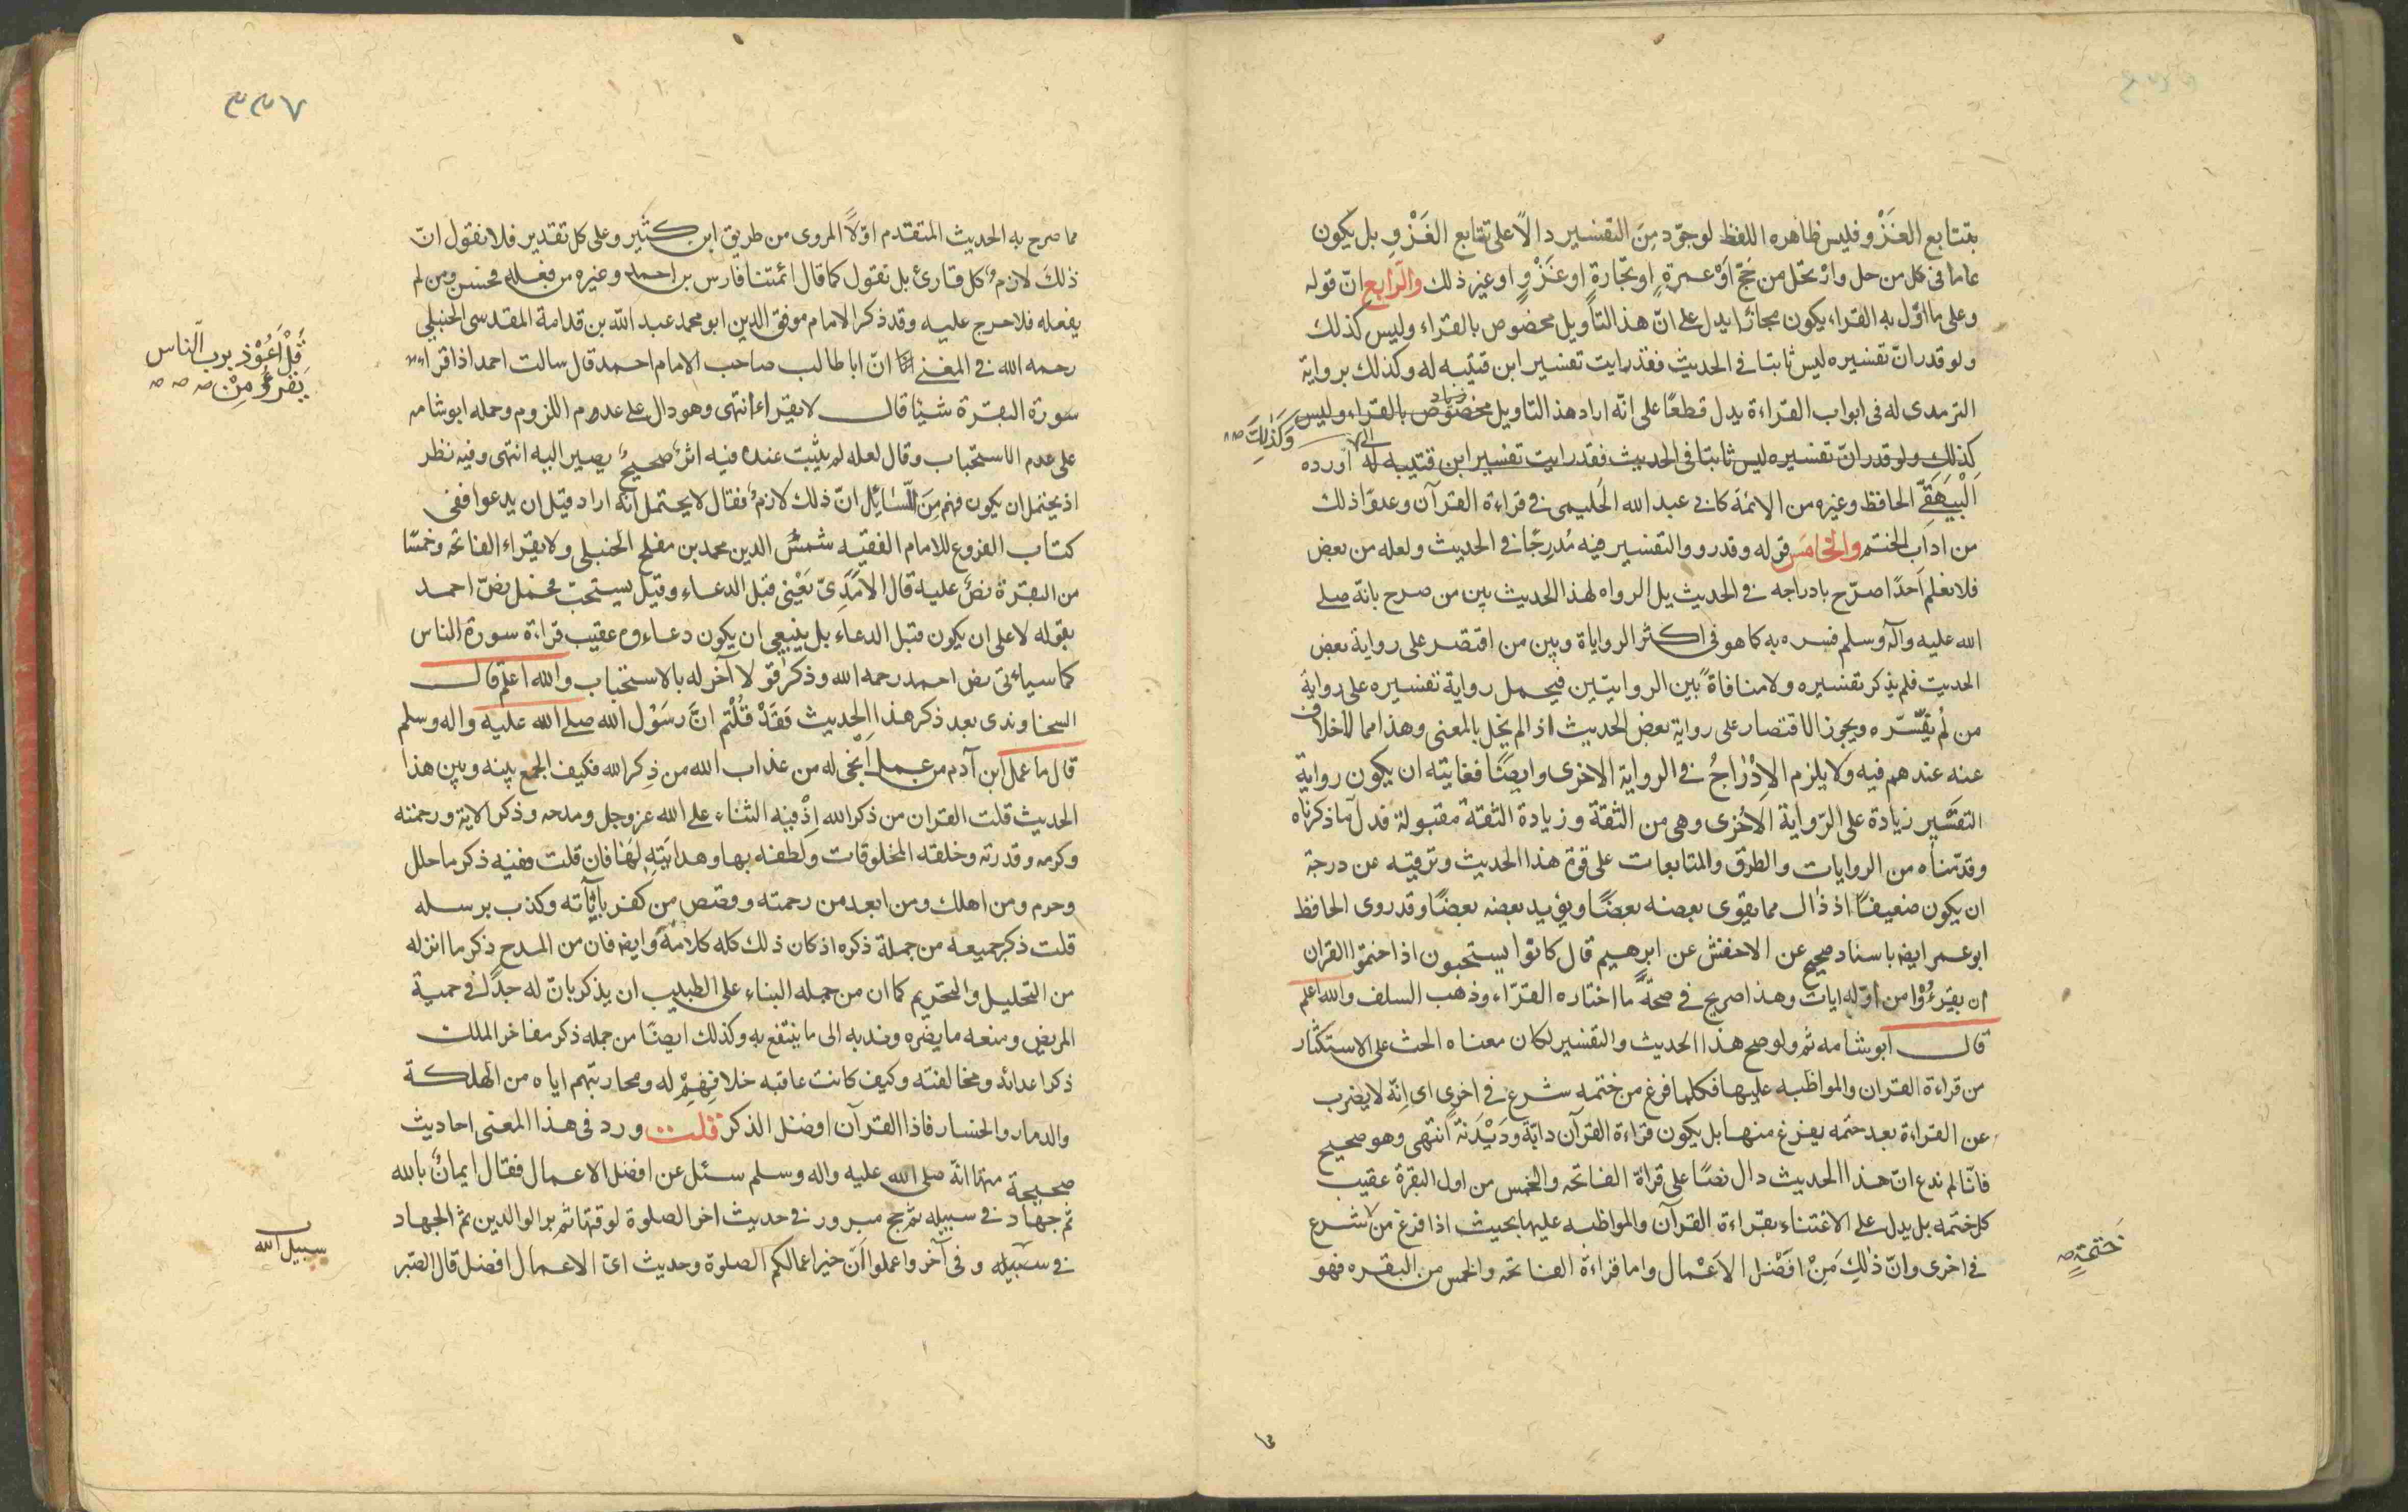 بتتابع الغَزْو فليس ظاهره اللفظ لوجوّد مِنَ التفسير دالاً على تتابع الغَزْوِ بل يكون
عاما فى كل من حل وارتحل من حَجّ اَوْ عمرةٍ او تجّارةٍ او غَزْوٍ او غير ذلك والرّابع انّ قوله
وعلى ما اوّل به القراء يكون مجازا يدل على انّ هذ التاْويل مخصوص بالقراء وليس كذلك
ولو قدر انّ تفسيره ليس ثابتا فى الحديث فقد رايت تفسير ابن قتيبه له وكذلك برواية
الترمدى له فى ابواب القراءة يدل قطعًا على انّه اراد هذ التاويل مخصوص بالقراء وليس
وَكَذٰلِكَ
كذلك ولو قدر انّ تفسيره ليس ثابتا فى الحديث فقد رايت تفسير ابن قتيبه له اورده
اَلْبَيْهَقِىّ الحافظ وغيره من الائمة كابى عبد الله الحَليمى فى قراءة القرآن وعدوّا ذلك
من اداب الختم والخامس قوله وقدروو التفسير فيه مُدرِجًا فى الحديث ولعله من بعض
فلا نعلم اَحدًا صرّح بادراجه فى الحديث بل الرواه لهذ الحديث بين من صرح بانّه صلى
الله عليه وآله وسلم فسره به كما هو فى اكثر الروايات وبين من اقتصر على رواية بعض
الحديت فلم يذكر تفسيره ولا منافاةً بين الروايتين فيحمل رواية تفسيره على رواية
من لم يفسّره ويجوز الاقتصار على رواية بعض الحديث اذ الم يخل بالمعنى وهذا مما لاخلاف
عنه عندهم فيه ولا يلزم الاِدْراجُ فى الرواية الاخرى وايضًا فغايته ان يكون رواية
التفسير زيادة على الرّواية الاُخرى وهى من الثقة وزيادة الثقة مقبولة فدل ما ذكرناه
وقدّمناه من الروايات والطرق والمتابعات على قوة هذا الحديث وترقيه عن درجة
ان يكون ضعيفًا اذ ذاك مما يقوى بعضه بعضًا ويؤيد بعضه بعضًا وقد روى الحافظ
ابو عمر ايضا باسناد صحيح عن الاحفش عن ابرهيم قال كانوا يستحبون اذا ختموا القران
ان يقرءُوْا من اوّله ايات وهذا صريح فى صحّة ما اختاره القرّاء وذهب السلف والله اعلم
قال ابو شامه ثم ولو صح هذا الحديث والتفسير لكان معناه الحث على الاستكثار
من قراءة القران والمواظبه عليها فكلما فرغ من ختمه شرع فى اخرى اى اِنّه لا يضرب
عن القراءة بعد ختمه يفرغ منها بل يكون قراءة القرآن دابَة ودَيْدَنهً انتهى وهو صحيح
فانّا لم ندع انّ هذا الحديث دال نصًا على قراة الفاتحه والخمس من اول البقرة عقيب
كل ختمه بل يدل على الاعتناء بقراءة القرآن والمواظبه عليها بحيث اذا فرغ من شرع
خَتمَةٍ
فى اخرى وانّ ذلِكَ مَنِ افَضْل الاَعْمال واما قراءة الفاتحه والخمس من البقره فهو
٣٣٧
مما صرح به الحديث المتقدم اوّلاً المروى من طريق ابن كثير وعلى كل تقدير فلا نقول انّ
ذلكَ لازمٌ كل قارئ بل نقول كما قال ائمتنا فارس بن احمد وغيره من فعله فحسن ومن لم
يفعله فلا حرج عليه وقد ذكر الامام موفق الدين ابو محمد عبد الله بن قدامة المقدسى الحنبلى
رحمه الله فى المغنى انّ ابا طالب صاحب الامام احمد قال سالت احمد اذا قراء
قُلْ اَعُوْذ برب النّاس
يَقرءُ مِنْ
سورة البقرة شيئا قال لا يقراء انتهى وهو دال على عدم اللزوم وحمله ابو شامه
على عدم الاستحباب وقال لعله لم يثبت عنده فيه اثرٌ صحيحٌ يصير اليه انتهى وفيه نظر
اذ يحتمل ان يكون فهم مِنَ السّائل انّ ذلك لازمٌ فقال لا يحتمل انّه اراد قبل ان يدعوا ففى
كتاب الفروع للامام الفقيه شمسُ الدين محمد بن مفلح الحنبلى ولا يقراء الفاتحه وخمسًا
من البقرة نصَ عليه قال الاٰمَدِىّ يَعْنِى قبل الدعاء وقيل يستحبّ فحمل نصّ احمد
بقوله لا على ان يكون قبل الدعاء بل ينبغى ان يكون دعاءوه عقيب قراءة سورة الناس
كما سياءتى نص احمد رحمه الله وذكر قولاً آخر له بالاستحباب والله اعلم قال
السخاوندى بعد ذكر هذا الحديث فَقَدْ قُلْتم انَّ رسَوْل الله صلى الله عليه واله وسلم
قال ما عمل ابن آدم من عمل اَنْجٰى له من عذاب الله من ذِكر الله فكيف الجمع بينه وبين هذا
الحديث قلت القران من ذكر الله اِذْ فيه الثناء على الله عز وجل ومدحه وذكر الاية ورحمته
وكرمه وقدرته وخلقه المخلوقات ولطفه بها وهدايتِهِ لهَا فان قلت ففيه ذكر ما حلل
وحرم ومن اهلك ومن ابعد من رحمته وقصص من كفر باٰياٰته وكذب برسله
قلت ذكر جميعه من جملة ذكره اذ كان ذلك كله كلامَهً وايضا فان من المدح ذكر ما انزله
من التحليل والتحريم كما ان من جمله البناء على الطبيب ان يذكر بانّ له جدًّا فى حمية
المريض ومنعه ما يضره وندبه الى ما ينتفع به وكذلك ايضًا من جمله ذكر مفاخر الملك
ذكر اعدائه ومخالفته وكيف كانت عاقبه خلافِهِمْ له ومحاربتهم اياه من الهلكة
والدمار والخسار فاذا القرآن افضل الذكر قلت ورد فى هذا المعنى احاديث
صحيحة منها انّه صلى الله عليه واله وسلم سئل عن افضل الاعمال فقال ايمانٌ بالله
ثم جهاد فى سبيله ثم حج مبرور فى حديث اخر الصلوة لوقتها ثم بر الوالدين ثم الجهاد
سبيل الله
فى سبيله وفى آخر واعملوا اَنّ خير اعمالكم الصلوة وحديث اىّ الاعمال افضل قال الصبر